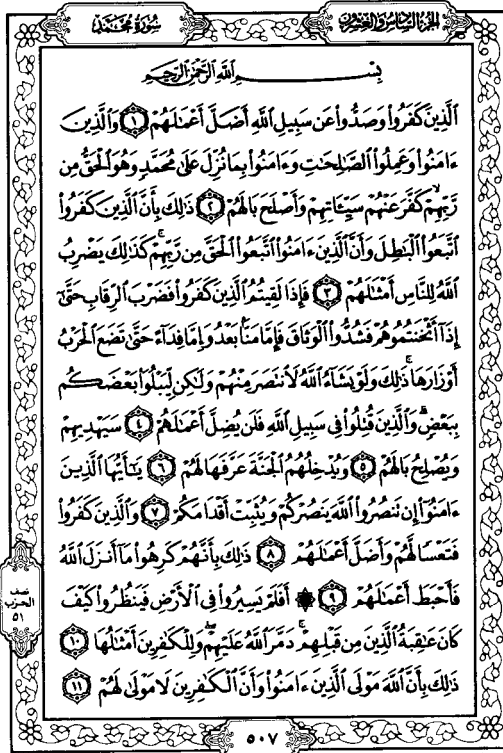 الجزء السادس والعشرون
سورة محمد
بِسْمِ اللَّهِ الرَّحْمَٰنِ الرَّحِيمِ
ٱلَّذِينَ كَفَرُوا۟ وَصَدُّوا۟ عَن سَبِيلِ ٱللَّهِ أَضَلَّ أَعْمَٰلَهُمْ ۝١ وَٱلَّذِينَ
ءَامَنُوا۟ وَعَمِلُوا۟ ٱلصَّٰلِحَٰتِ وَءَامَنُوا۟ بِمَا نُزِّلَ عَلَىٰ مُحَمَّدٍ وَهُوَ ٱلْحَقُّ مِن
رَّبِّهِمْ ۙ كَفَّرَ عَنْهُمْ سَيِّـَٔاتِهِمْ وَأَصْلَحَ بَالَهُمْ ۝٢ ذَٰلِكَ بِأَنَّ ٱلَّذِينَ كَفَرُوا۟
ٱتَّبَعُوا۟ ٱلْبَٰطِلَ وَأَنَّ ٱلَّذِينَ ءَامَنُوا۟ ٱتَّبَعُوا۟ ٱلْحَقَّ مِن رَّبِّهِمْ ۚ كَذَٰلِكَ يَضْرِبُ
ٱللَّهُ لِلنَّاسِ أَمْثَٰلَهُمْ ۝٣ فَإِذَا لَقِيتُمُ ٱلَّذِينَ كَفَرُوا۟ فَضَرْبَ ٱلرِّقَابِ حَتَّىٰٓ
إِذَآ أَثْخَنتُمُوهُمْ فَشُدُّوا۟ ٱلْوَثَاقَ فَإِمَّا مَنًّۢا بَعْدُ وَإِمَّا فِدَآءً حَتَّىٰ تَضَعَ ٱلْحَرْبُ
أَوْزَارَهَا ۚ ذَٰلِكَ وَلَوْ يَشَآءُ ٱللَّهُ لَٱنتَصَرَ مِنْهُمْ وَلَٰكِن لِّيَبْلُوَا۟ بَعْضَكُم
بِبَعْضٍ ۗ وَٱلَّذِينَ قُتِلُوا۟ فِى سَبِيلِ ٱللَّهِ فَلَن يُضِلَّ أَعْمَٰلَهُمْ ۝٤ سَيَهْدِيهِمْ
وَيُصْلِحُ بَالَهُمْ ۝٥ وَيُدْخِلُهُمُ ٱلْجَنَّةَ عَرَّفَهَا لَهُمْ ۝٦ يَٰٓأَيُّهَا ٱلَّذِينَ
ءَامَنُوٓا۟ إِن تَنصُرُوا۟ ٱللَّهَ يَنصُرْكُمْ وَيُثَبِّتْ أَقْدَامَكُمْ ۝٧ وَٱلَّذِينَ كَفَرُوا۟
فَتَعْسًا لَّهُمْ وَأَضَلَّ أَعْمَٰلَهُمْ ۝٨ ذَٰلِكَ بِأَنَّهُمْ كَرِهُوا۟ مَآ أَنزَلَ ٱللَّهُ
فَأَحْبَطَ أَعْمَٰلَهُمْ ۝٩ ۞ أَفَلَمْ يَسِيرُوا۟ فِى ٱلْأَرْضِ فَيَنظُرُوا۟ كَيْفَ
كَانَ عَٰقِبَةُ ٱلَّذِينَ مِن قَبْلِهِمْ ۚ دَمَّرَ ٱللَّهُ عَلَيْهِمْ ۖ وَلِلْكَٰفِرِينَ أَمْثَٰلُهَا ۝١٠
ذَٰلِكَ بِأَنَّ ٱللَّهَ مَوْلَى ٱلَّذِينَ ءَامَنُوا۟ وَأَنَّ ٱلْكَٰفِرِينَ لَا مَوْلَىٰ لَهُمْ ۝١١
نصف
الحزب
٥١
٥٠٧